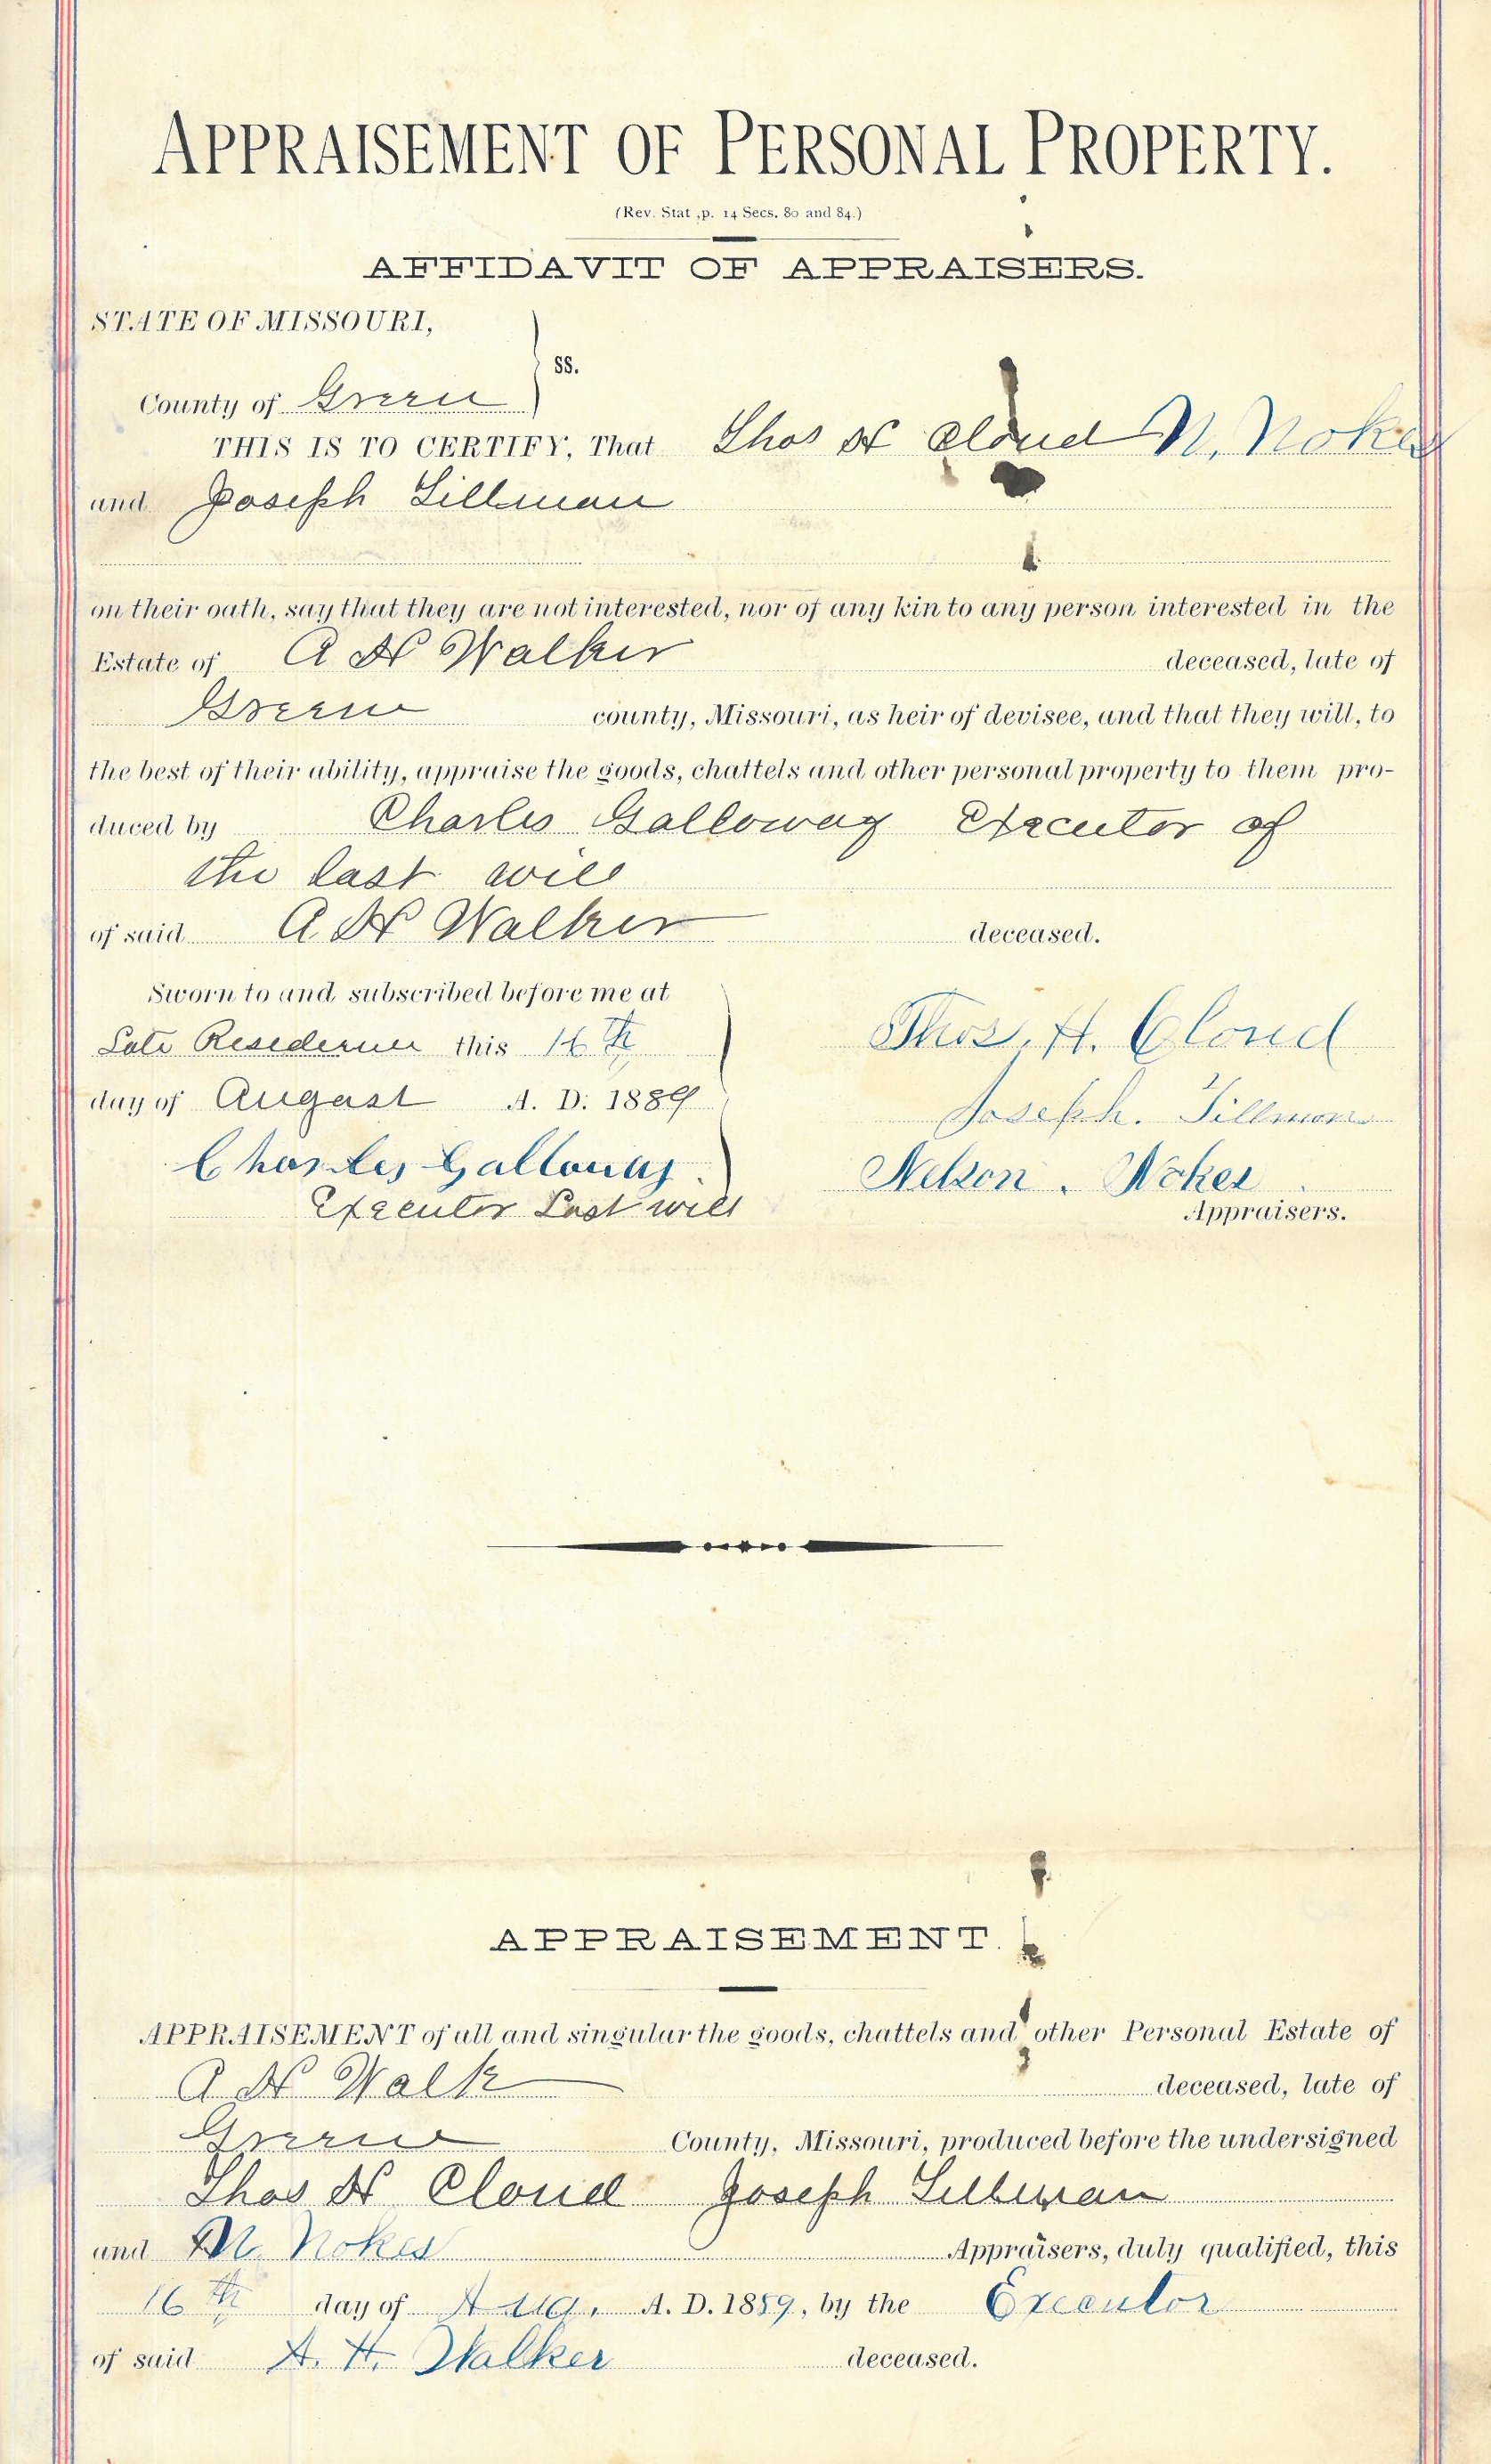 APPRAISEMENT OF PERSONAL PROPERTY.
(Rev. Stat ,p. 14 Secs. 80 and 84.)
AFFIDAVIT OF APPRAISERS.
STATE OF MISSOURI,
ss.
County of Green
THIS IS TO CERTIFY, That Thos H Cloud N. Nokes
and Joseph Tillman
on their oath, say that they are not interested, nor of any kin to any person interested in the
Estate of A H Walker deceased, late of
Green county, Missouri, as heir of devisee, and that they will, to
the best of their ability, appraise the goods, chattels and other personal property to them pro-
duced by Charles Galloway Executor of
the last will
of said A. H Walker deceased.
Sworn to and subscribed before me at
Late Residence this 16th
day of August A. D. 1889
Charles Galloway
Executor Last will
Thos. H. Cloud
Joseph. Tillmon
Nelson. Nokes
Appraisers.
APPRAISEMENT.
APPRAISEMENT of all and singular the goods, chattels and other Personal Estate of
A H Walk deceased, late of
Green County, Missouri, produced before the undersigned
Thos H Cloud Joseph Tillman
and N. Nokes Appraisers, duly qualified, this
16th day of Aug. A. D. 1889, by the Executor
of said A. H. Walker deceased.